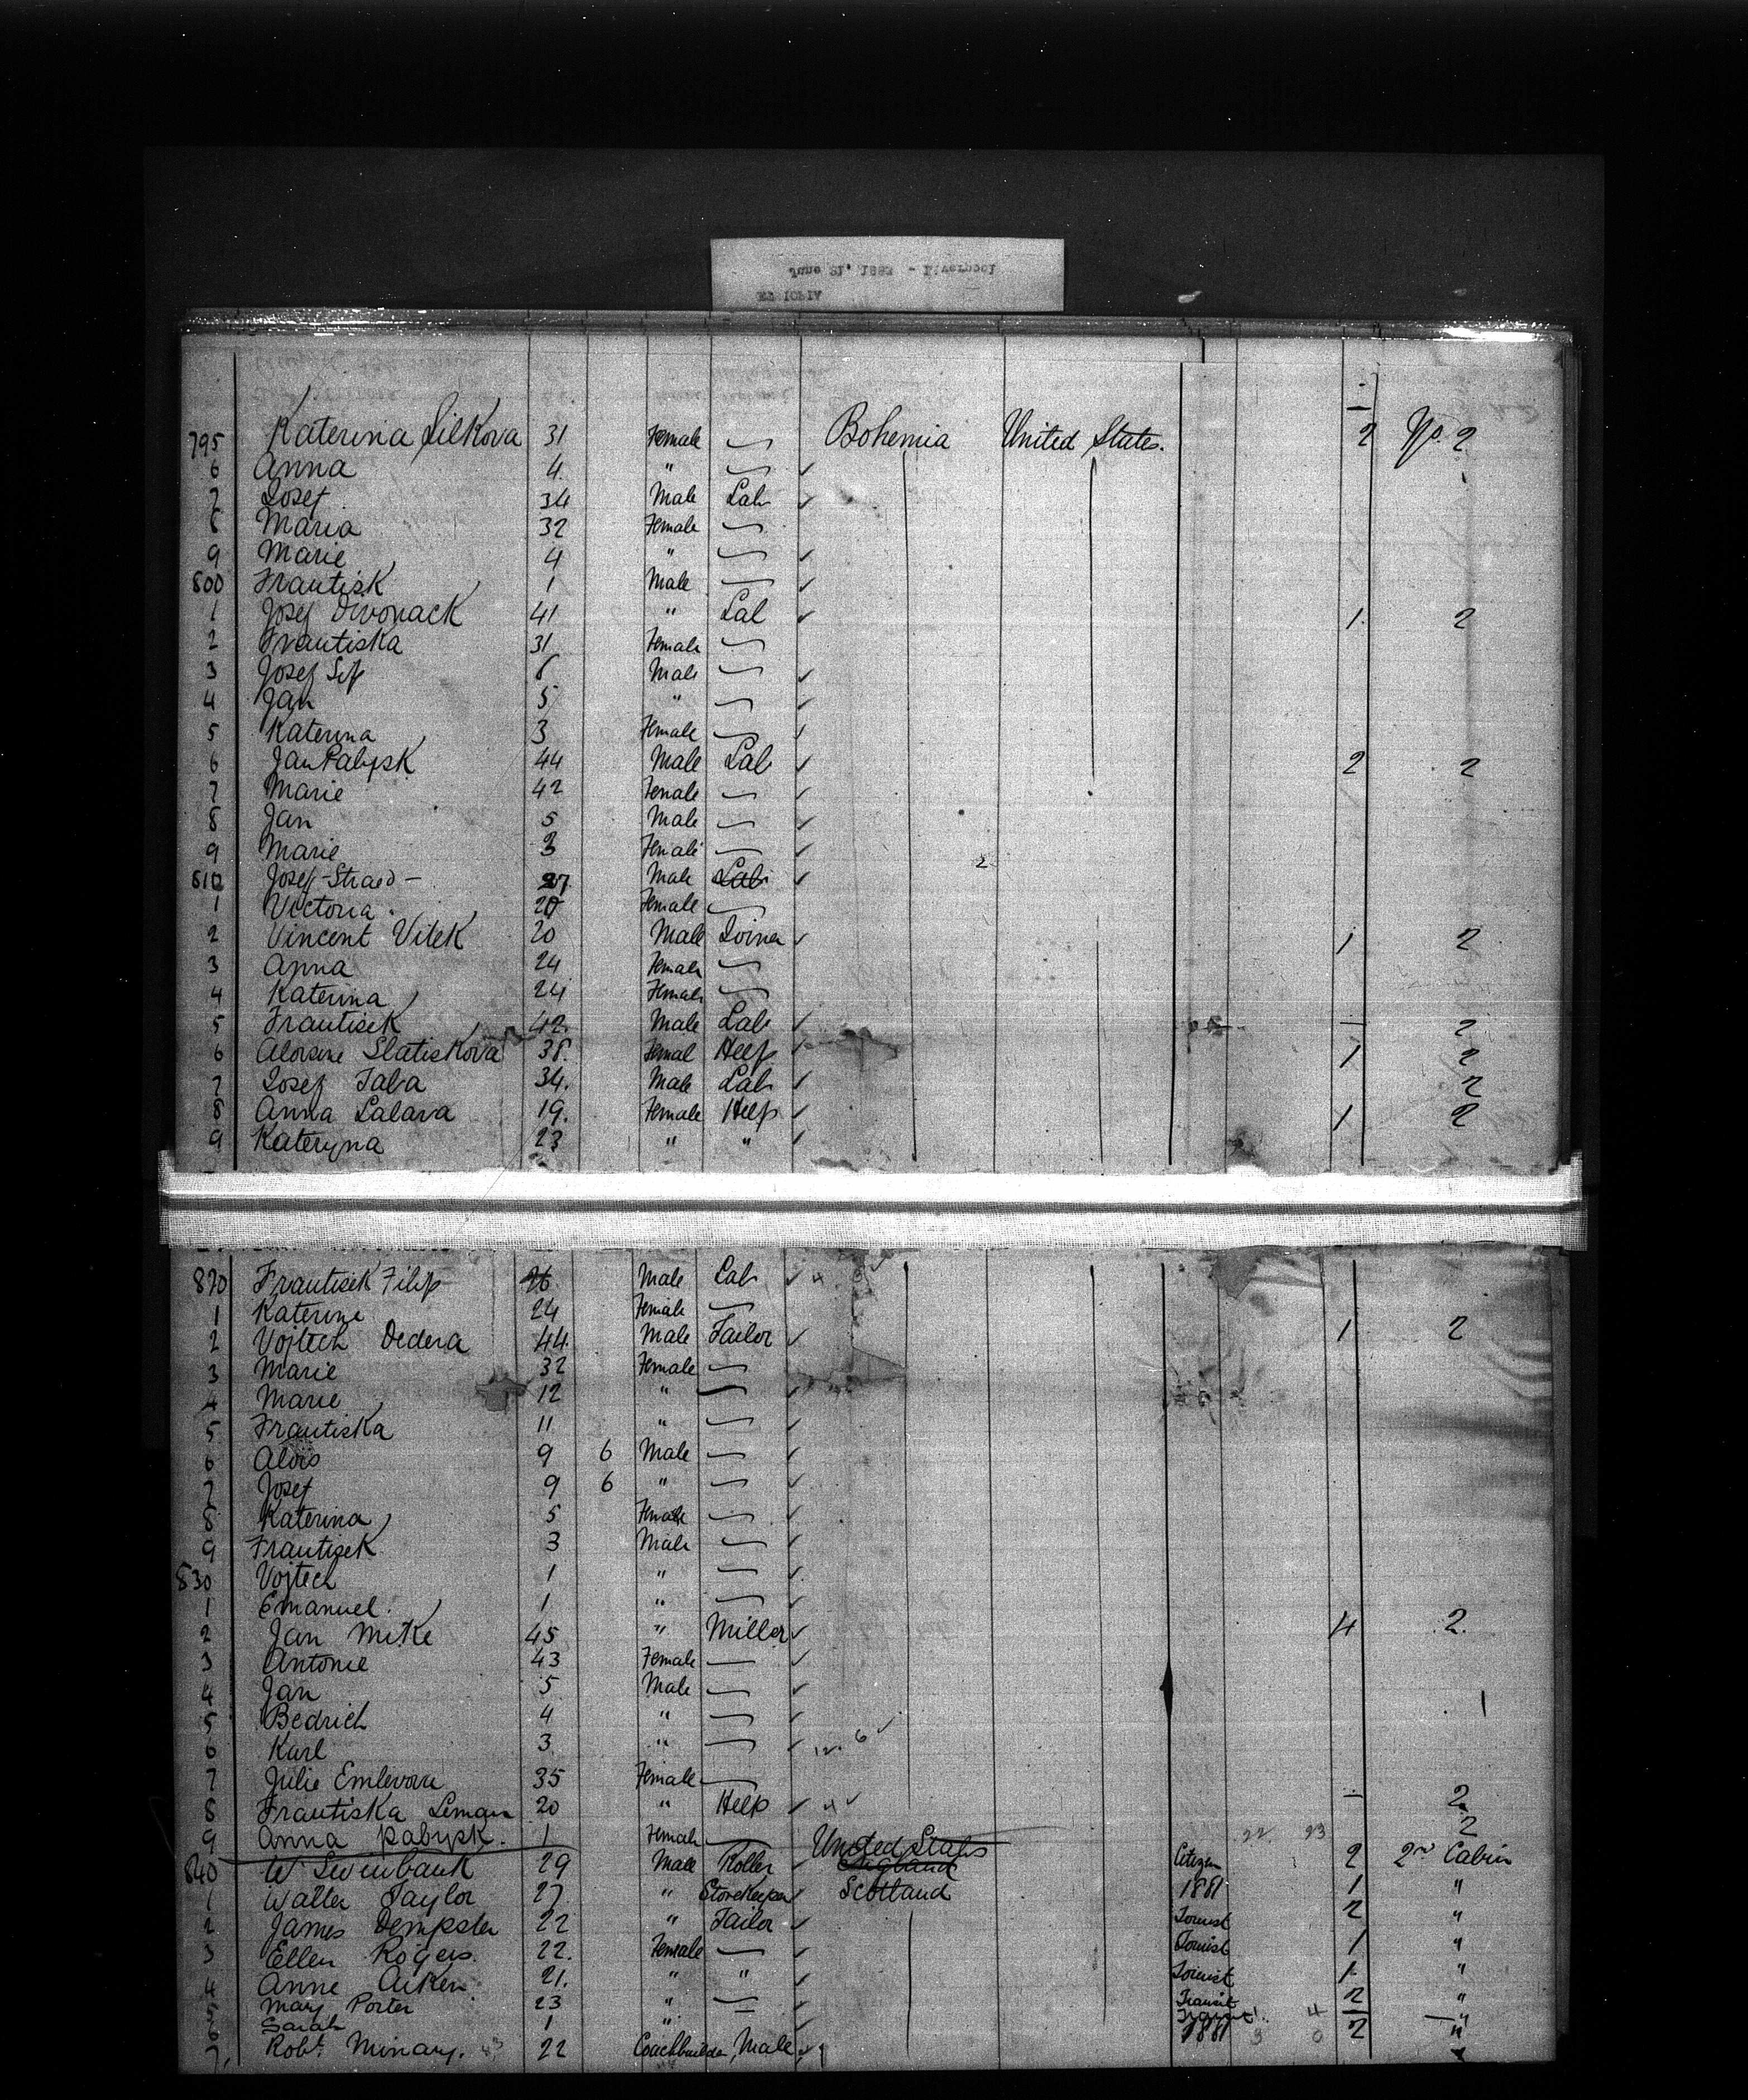 June 21, 1882 - Liverpool
795 Katerina Silkova 31 Female Bohemia United States. 2 No. 2
6 Anna 4 "
7 Josef 34 Male Lab
8 Maria 32 Female
9 Marie 4 "
800 Frantisk 1 Male
1 Josef Dwonack 41 " Lab 1 2
2 Frantiska 31 Female
3 Josef 6 Male
4 Jan 5 "
5 Katerina 3 Female
6 Jan Pabysk 44 Male Lab 2 2
7 Marie 42 Female
8 Jan 5 Male
9 Marie 3 Female 2
810 Josef Male Lab
1 Victoria 20 Female
2 Vincent Vitek 20 Male 1 2
3 Anna 24 Female
4 Katerina 24 Female
5 Frantisek 42 Male Lab - 2
6 Slatiskova 38. Femal Help 1 2
7 Josef Taba 34. Male Lab 2
8 Anna Lalava 19. Female Help 1 2
9 Kateryna 23 " "
820 Frantisek Filip 26 Male Lab
1 Katerine 24 Female
2 Vojtech Dedera 44 Male Tailor 1 2
3 Marie 32 Female
4 Marie 12 "
5 Frantiska 11 "
6 Alois 9 6 Male
7 Josef 9 6 "
8 Katerina 5 Female
9 Frantisek 3 Male
830 Vojtech 1 "
1 Emanuel. 1 "
2 Jan Mike 45 " Miller 4 2.
3 Antonie 43 Female
4 Jan 5 Male
5 Bedrich 4 "
6 Karl 3 "
7 Julie 35 Female - 2
8 Frantiska Leman 20 " Help 2
9 Anna Pabysk. 1 Female
United States
840 W Swinbank 29 Male Roller England Citizen 2 2nd Cabin
1 Walter Taylor 27 " Storekeeper Scotland 1881 1 "
2 James Dempster 22 " Tailor Tourist 2 "
3 Ellen Rogers. 22. Female Tourist 1 "
4 Anne Aiken. 21. " " Tourist 1 "
5 Mary Porter 23 " Transit 2 "
6 Sarah 1 " "
7. Robt. Minary. 22 Coachbuilder, Male 1881 2 "